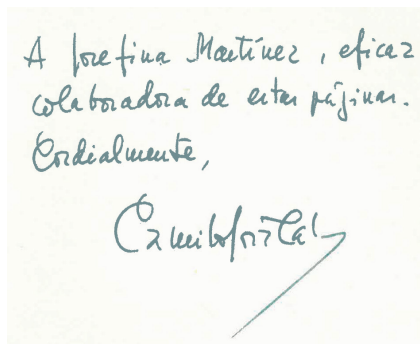 A Josefina Martínez, eficaz
colaboradora de estas páginas.
Cordialmente,
Camilo José Cela